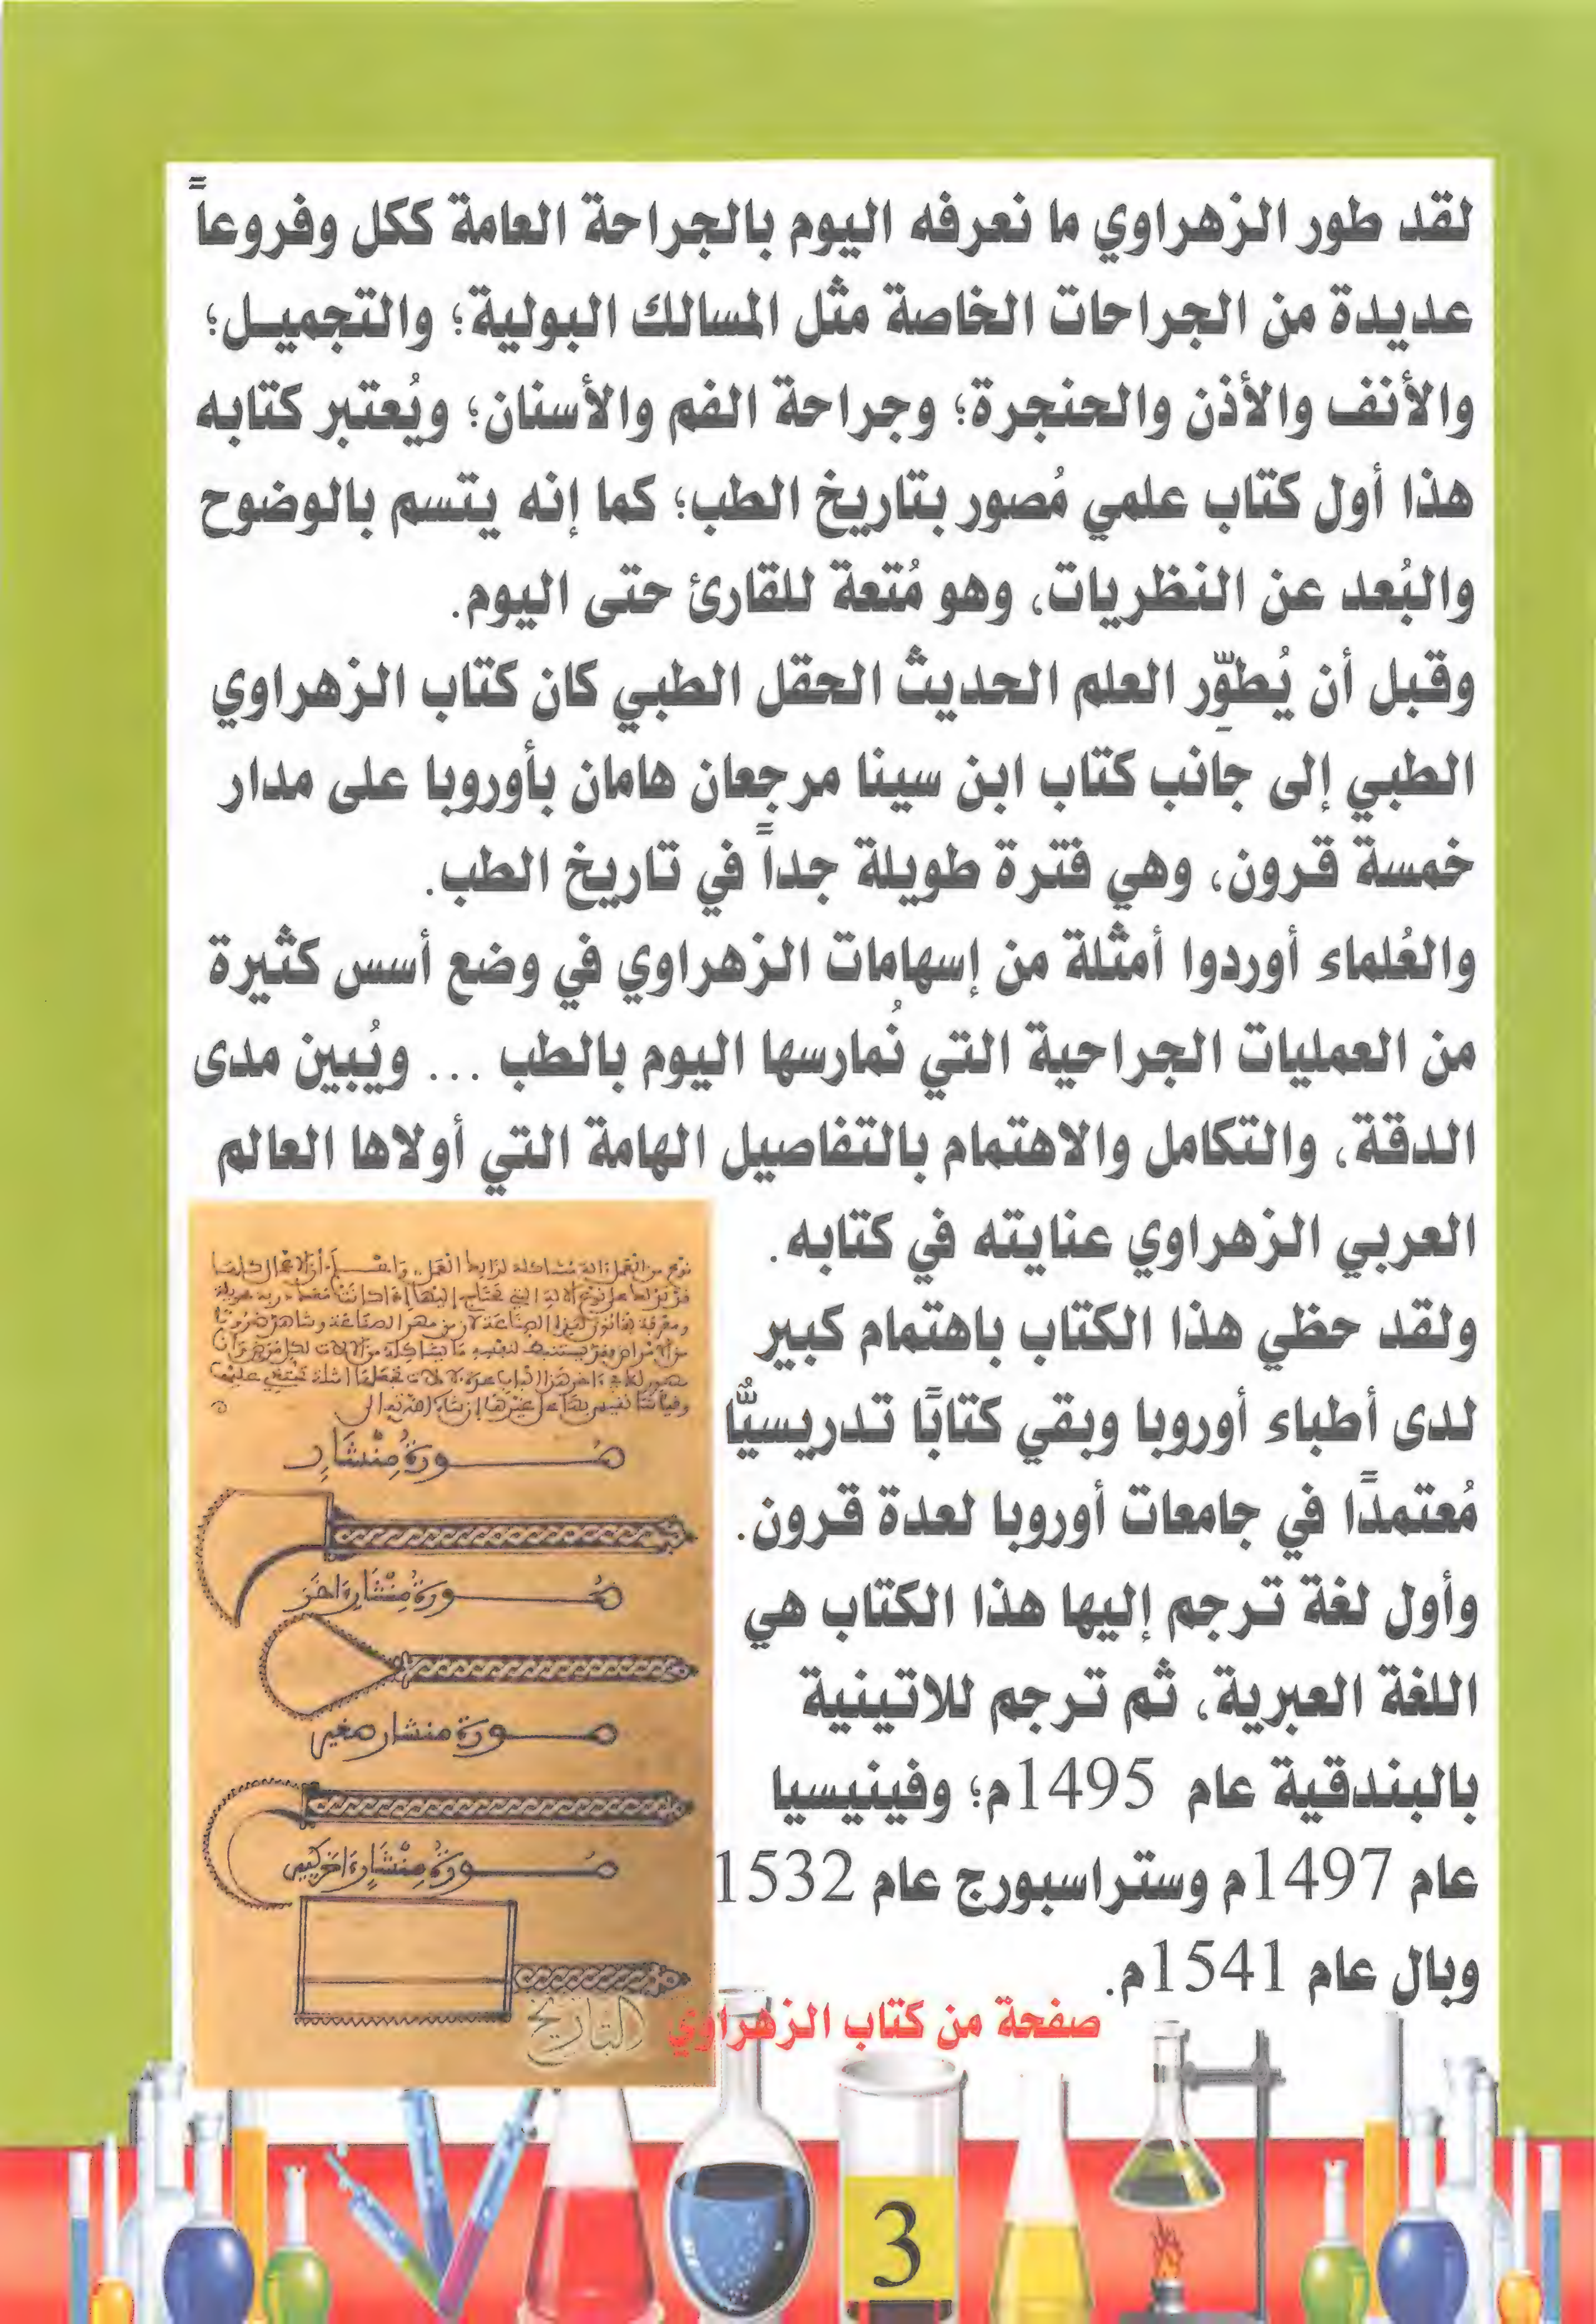 لقد طور الزهراوي ما نعرفه اليوم بالجراحة العامة ككل وفروعاً
عديدة من الجراحات الخاصة مثل المسالك البولية؛ والتجميل؛
والأنف والأذن والحنجرة؛ وجراحة الفم والأسنان؛ ويُعتبر كتابه
هذا أول كتاب علمي مُصور بتاريخ الطب؛ كما إنه يتسم بالوضوح
والبُعد عن النظريات، وهو مُتعة للقارئ حتى اليوم.
وقبل أن يُطوِّر العلم الحديث الحقل الطبي كان كتاب الزهراوي
الطبي إلى جانب كتاب ابن سينا مرجعان هامان بأوروبا على مدار
خمسة قرون، وهي فترة طويلة جداً في تاريخ الطب.
والعُلماء أوردوا أمثلة من إسهامات الزهراوي في وضع أسس كثيرة
من العمليات الجراحية التي نُمارسها اليوم بالطب ... ويُبين مدى
الدقة، والتكامل والاهتمام بالتفاصيل الهامة التي أولاها العالم
العربي الزهراوي عنايته في كتابه.
ولقد حظي هذا الكتاب باهتمام كبير
لدى أطباء أوروبا وبقي كتابًا تدريسيٌّا
مُعتمدًا في جامعات أوروبا لعدة قرون.
وأول لغة ترجم إليها هذا الكتاب هي
اللغة العبرية، ثم ترجم للاتينية
بالبندقية عام 1495م؛ وفينيسيا
عام 1497م وستراسبورج عام 1532
وبال عام 1541م.
صورة منشار
صورة منشار اخر
صورة منشار صغير
صورة منشار اخر كبير
التاريخ
صفحة من كتاب الزهراوي
3